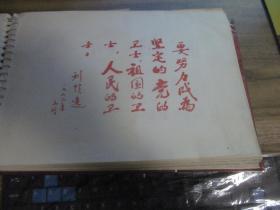 要努力成为
坚定的党的
卫士，祖国的卫
士，人民的卫
士。